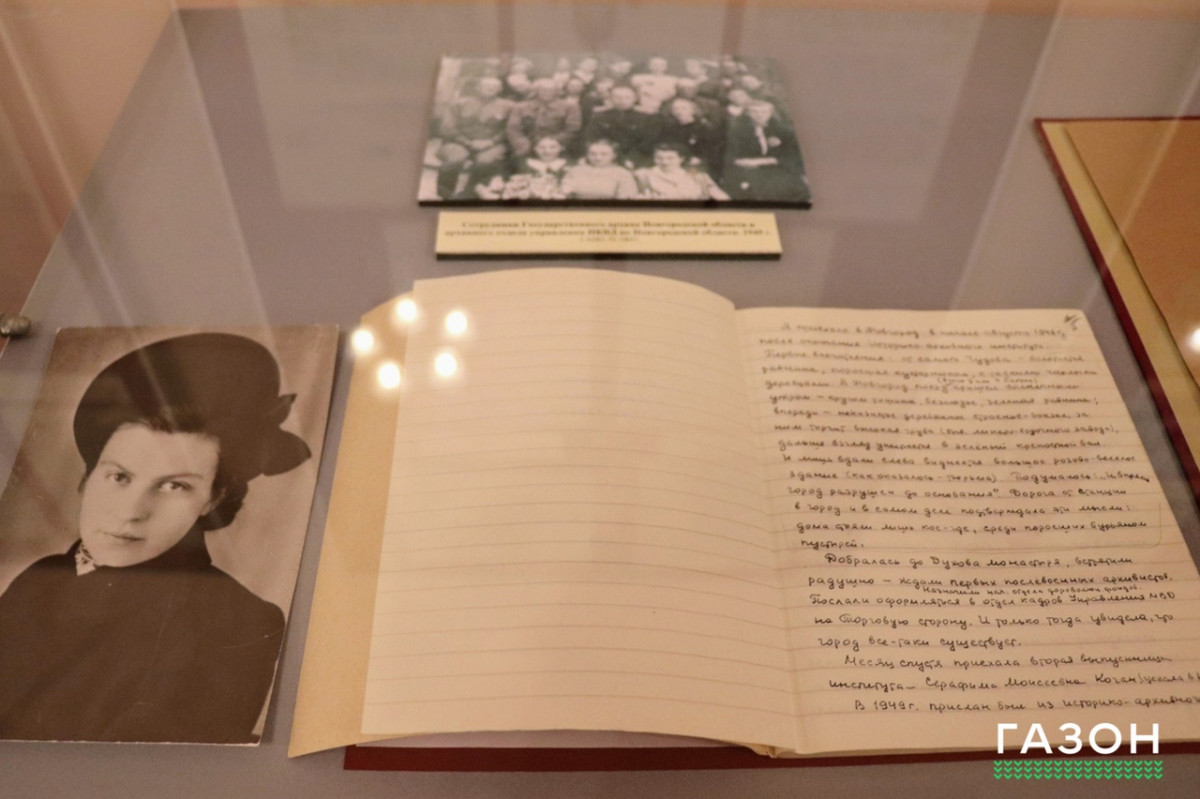 Сотрудники Государственного архива Новгородской области и
архивного отдела управления НКВД по Новгородской области. 1945 г.
Я приехала в Новгород в начале августа 1948 г.
после окончания историко-архивного института.
Первые впечатления: от самого Чудова - болотистая
равнина, поросшая кустарником, с
деревьями. В Новгород поезд пришел
утром - кругом тишина, безлюдье, зеленая равнина;
впереди - неказистое деревянное строение - вокзал, за
ним торчит высокая труба (бывш. ликеро-водочного завода),
дальше взгляд упирается в зеленый крепостной вал.
И лишь вдали слева виднеется большое розово-веселое
здание (как оказалось - тюрьма). Подумалось: "и впрямь
город разрушен до основания". Дорога от станции
в город и в самом деле подтверждала эти мысли:
дома стояли лишь кое-где, среди поросших бурьяном
пустырей.
Добралась до Духова монастыря, встретили
радушно - ждали первых послевоенных архивистов.
Назначили нач. отдела дореволюц. фондов.
Послали оформляться в отдел кадров Управления МВД
на Торговую сторону. И только тогда увидела, что
город все-таки существует.
Месяц спустя приехала вторая выпускница
института - Серафима Моисеевна Коган (уехала в
В 1949 г. прислан был из историко-архивного
ГАЗОН